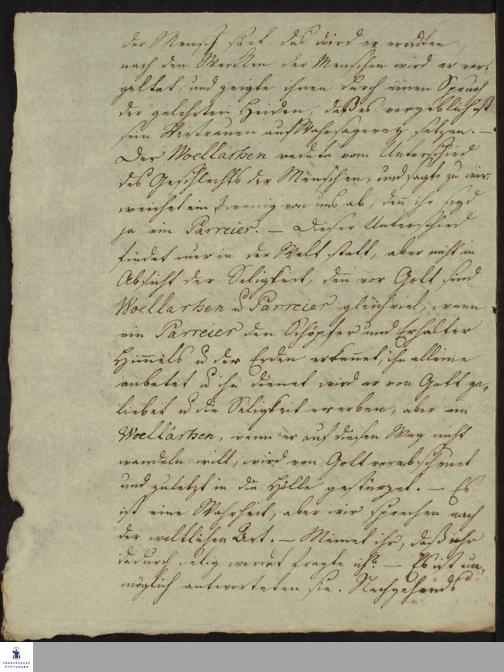 der Mensch säet, das wird er erndten,
nach den Wercken der Menschen wird er ver-
galtet, und zeigte ihnen durch einen Spruch
der gelehrten Heiden, daß es vergeblich ist
sein Vertrauen auf Wahrsagerey setzen. —
Der Woellarhen redete vom Unterschied
des Geschlechts der Menschen, und sagte zu mir:
weichet ein wenig von uns ab, den ihr seyd
ja ein Parreier. — Dieser Unterschied
findet nur in der Welt statt, aber nicht in
Absicht der Seligkeit, den vor Gott sind
Woellarhen u Parreier gleichviel, wenn
ein Parreier den Schöpfer und Erhalter
Himels u der Erden erkennet, ihn alleine
anbetet u ihn dienet wird er von Gott ge-
liebet u die Seligkeit ererben, aber ein
Woellarhen, wenn er auf diesen Weg nicht
wandeln will, wird von Gott verabscheuet
und zuletzt in die Hölle gestürzet. — Es
ist eine Wahrheit, aber wir sprechen nach
der weltlichen Art. — Meinet ihr, daß ihr
dadurch selig werdet fragte ich? — Es ist un-
möglich antworteten sie. Nachgehends